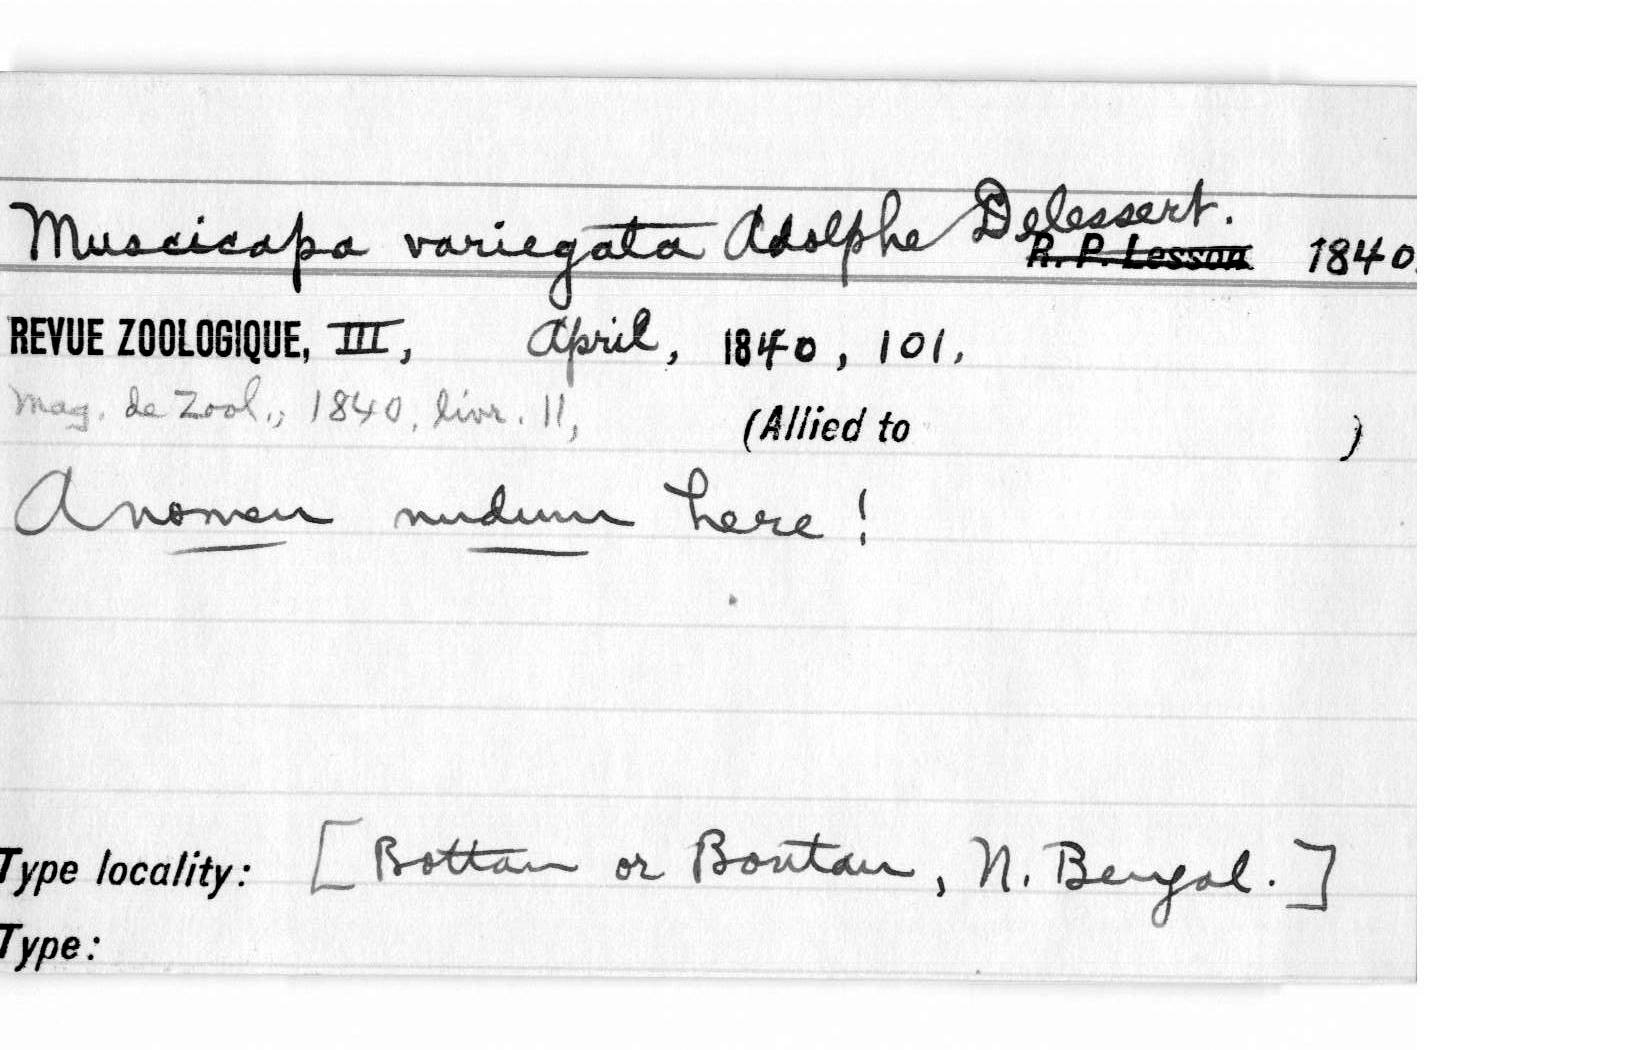 Muscicapa variegata Adolphe Delessert.
R. P. Lesson 1840.
REVUE ZOOLOGIQUE, III, April, 1840, 101,
Mag. de Zool., 1840, livr. 11,
(Allied to )
A nomen nudum here!
Type locality: [Bottan or Boutan, N. Bengal.]
Type: